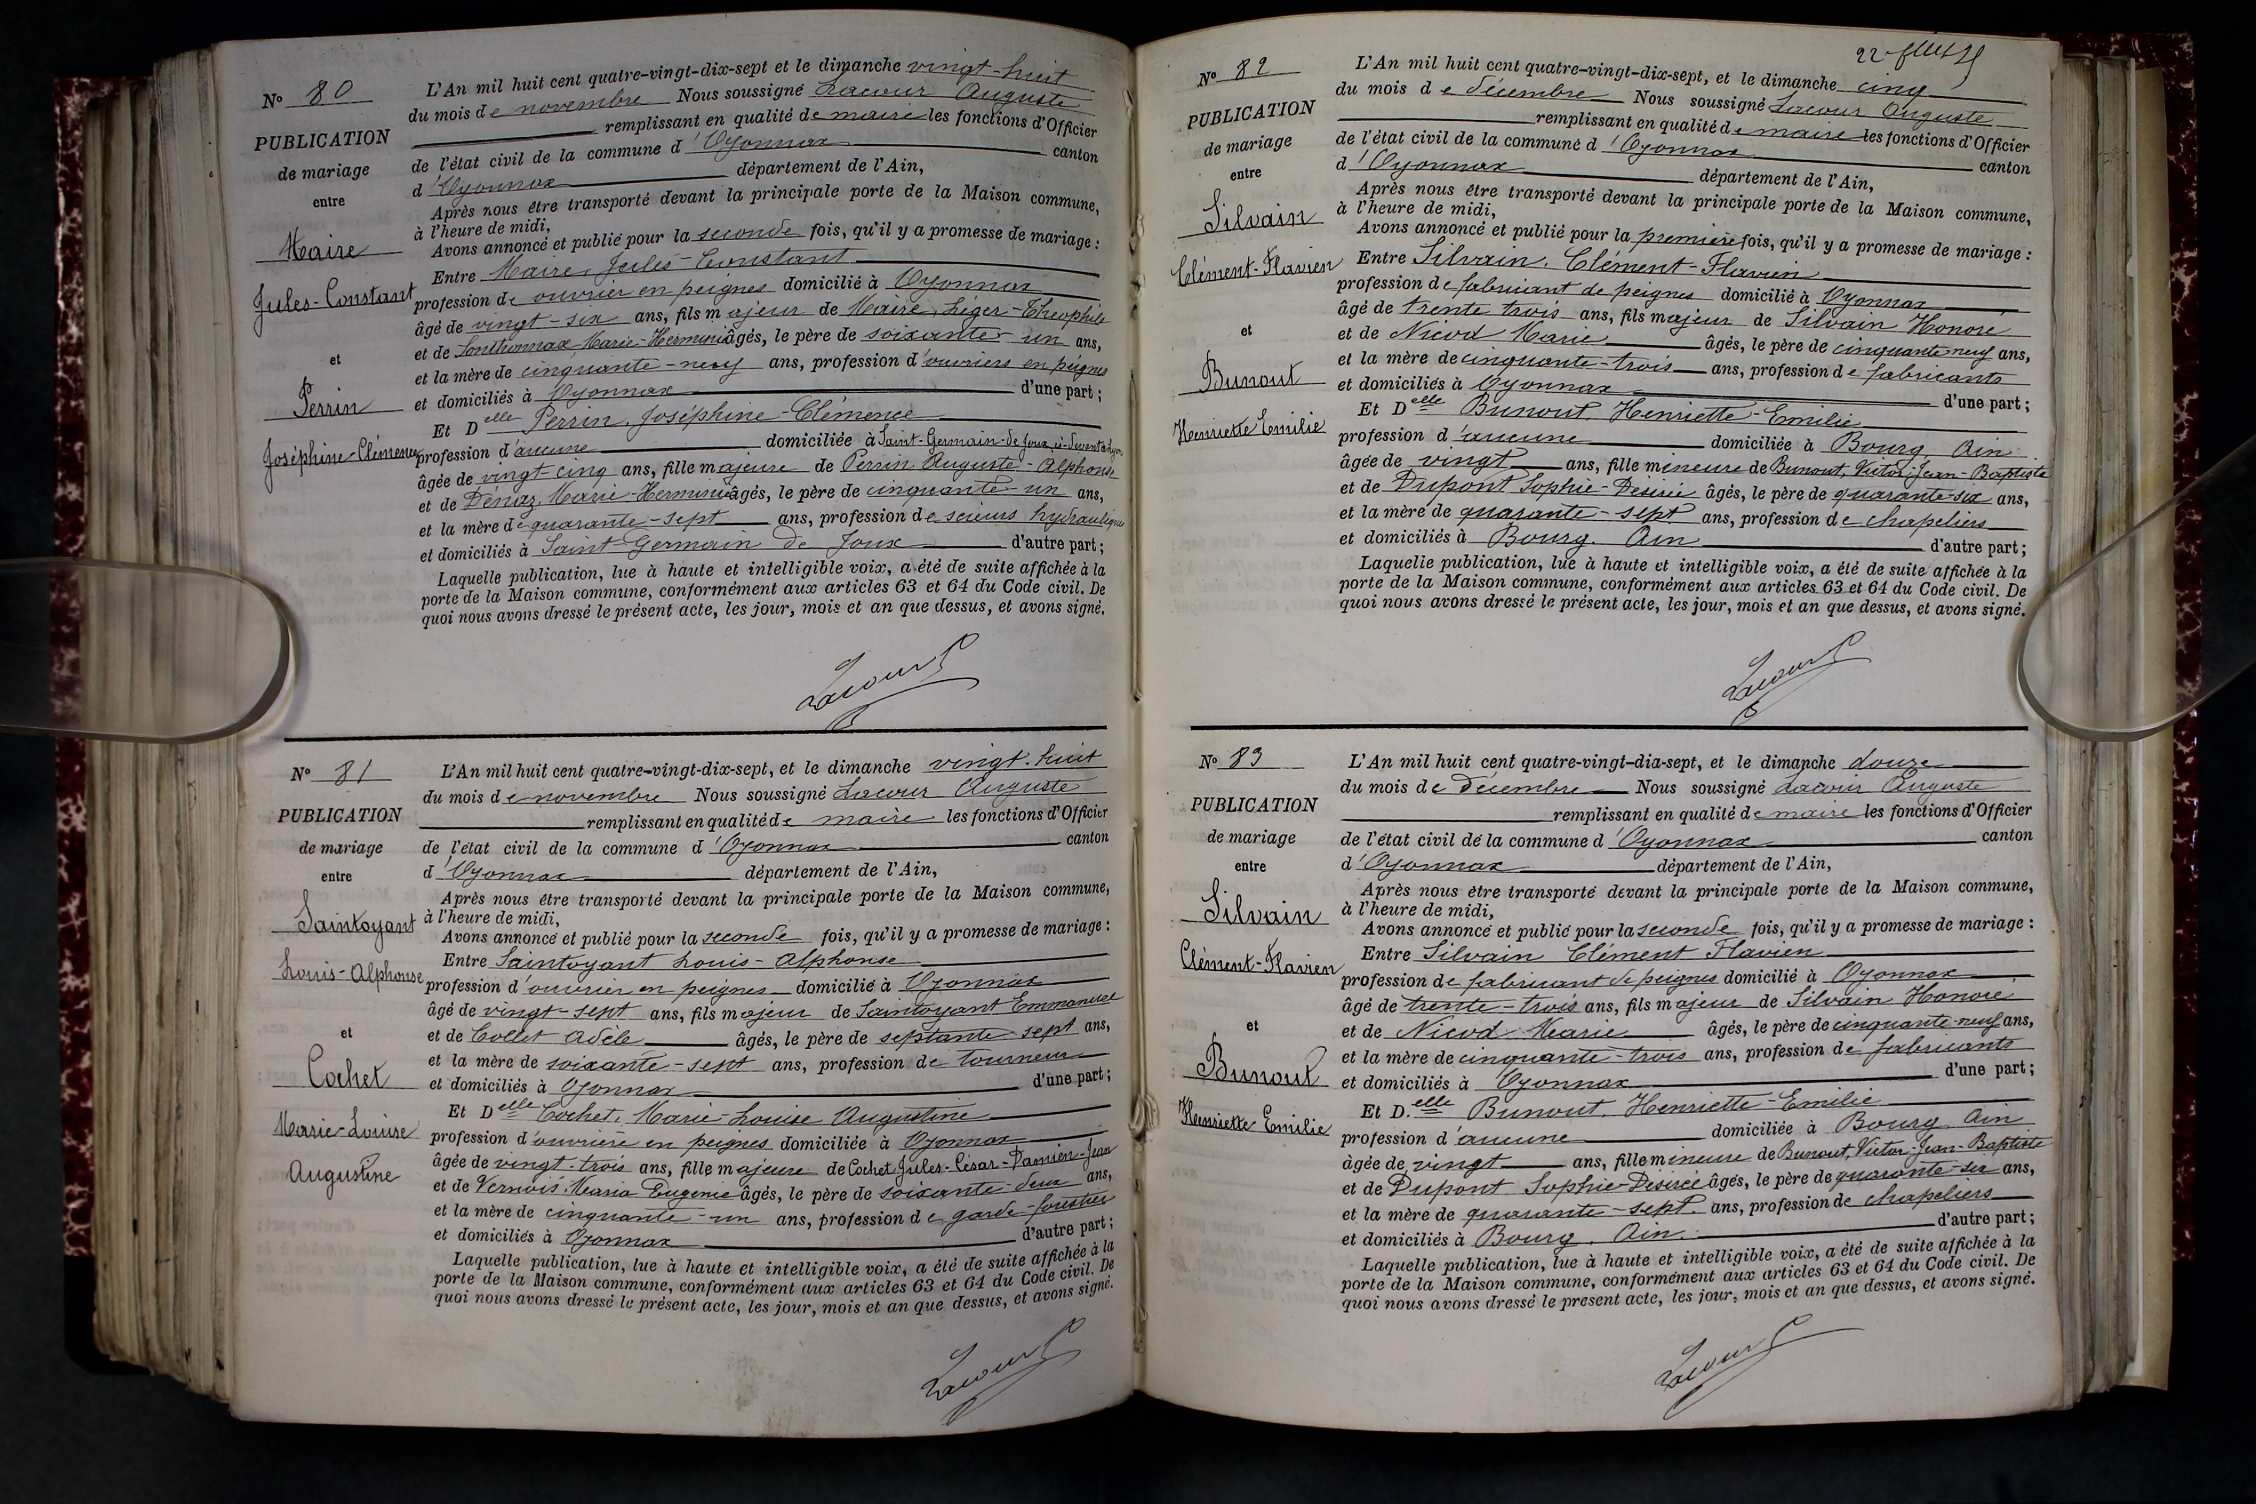 N° 80
PUBLICATION
de mariage
entre
Maire
Jules-Constant
et
Perrin
Joséphine-Clémence
L'An mil huit cent quatre-vingt-dix-sept et le dimanche vingt-huit
du mois de novembre Nous soussigné Lacour Auguste
remplissant en qualité de maire les fonctions d'Officier
de l'état civil de la commune d'Oyonnax canton
d'Oyonnax département de l'Ain,
Après nous être transporté devant la principale porte de la Maison commune,
à l'heure de midi,
Avons annoncé et publié pour la seconde fois, qu'il y a promesse de mariage :
Entre Maire, Jules-Constant
profession de ouvrier en peignes domicilié à Oyonnax
âgé de vingt-six ans, fils majeur de Maire, Léger-Théophile
et de Sonthonnax, Marie-Herminie âgés, le père de soixante-un ans,
et la mère de cinquante-neuf ans, profession d'ouvriers en peignes
et domiciliés à Oyonnax d'une part ;
Et Delle Perrin, Joséphine-Clémence
profession d'aucune domiciliée à Saint-Germain-de-Joux, ci-devant à
âgée de vingt cinq ans, fille majeure de Perrin Auguste-Alphonse
et de Pénaz, Marie-Herminie âgés, le père de cinquante-un ans,
et la mère de quarante-sept ans, profession de scieurs hydraulique
et domiciliés à Saint-Germain de Joux d'autre part ;
Laquelle publication, lue à haute et intelligible voix, a été de suite affichée à la
porte de la Maison commune, conformément aux articles 63 et 64 du Code civil. De
quoi nous avons dressé le présent acte, les jour, mois et an que dessus, et avons signé.
Lacour
N° 81
PUBLICATION
de mariage
entre
Saintoyant
Louis-Alphonse
et
Cochet
Marie-Louise
Augustine
L'An mil huit cent quatre-vingt-dix-sept, et le dimanche vingt-huit
du mois de novembre Nous soussigné Lacour Auguste
remplissant en qualité de maire les fonctions d'Officier
de l'état civil de la commune d'Oyonnax canton
d'Oyonnax département de l'Ain,
Après nous être transporté devant la principale porte de la Maison commune,
à l'heure de midi,
Avons annoncé et publié pour la seconde fois, qu'il y a promesse de mariage :
Entre Saintoyant Louis-Alphonse
profession d'ouvrier en peignes domicilié à Oyonnax
âgé de vingt-sept ans, fils majeur de Saintoyant Emmanuel
et de Collet Adèle âgés, le père de septante-sept ans,
et la mère de soixante-sept ans, profession de tourneur
et domiciliés à Oyonnax d'une part ;
Et Delle Cochet, Marie-Louise Augustine
profession d'ouvrière en peignes domiciliée à Oyonnax
âgée de vingt-trois ans, fille majeure de Cochet Jules-César-Damien-Jean
et de Vernois Maria Eugénie âgés, le père de soixante-deux ans,
et la mère de cinquante-un ans, profession de garde-forestier
et domiciliés à Oyonnax d'autre part ;
Laquelle publication, lue à haute et intelligible voix, a été de suite affichée à la
porte de la Maison commune, conformément aux articles 63 et 64 du Code civil. De
quoi nous avons dressé le présent acte, les jour, mois et an que dessus, et avons signé.
Lacour
N° 82
PUBLICATION
de mariage
entre
Silvain
Clément-Flavien
et
Bunout
Henriette Emilie
L'An mil huit cent quatre-vingt-dix-sept, et le dimanche cinq
du mois de décembre Nous soussigné Lacour Auguste
remplissant en qualité de maire les fonctions d'Officier
de l'état civil de la commune d'Oyonnax canton
d'Oyonnax département de l'Ain,
Après nous être transporté devant la principale porte de la Maison commune,
à l'heure de midi,
Avons annoncé et publié pour la première fois, qu'il y a promesse de mariage :
Entre Silvain, Clément-Flavien
profession de fabricant de peignes domicilié à Oyonnax
âgé de trente trois ans, fils majeur de Silvain Honoré
et de Nicod Marie âgés, le père de cinquante neuf ans,
et la mère de cinquante-trois ans, profession de fabricants
et domiciliés à Oyonnax d'une part ;
Et Delle Bunout, Henriette-Emilie
profession d'aucune domiciliée à Bourg, Ain
âgée de vingt ans, fille mineure de Bunout, Victor-Jean-Baptiste
et de Dupont Sophie-Désirée âgés, le père de quarante-six ans,
et la mère de quarante-sept ans, profession de chapeliers
et domiciliés à Bourg. Ain d'autre part ;
Laquelle publication, lue à haute et intelligible voix, a été de suite affichée à la
porte de la Maison commune, conformément aux articles 63 et 64 du Code civil. De
quoi nous avons dressé le présent acte, les jour, mois et an que dessus, et avons signé.
Lacour
N° 83
PUBLICATION
de mariage
entre
Silvain
Clément-Flavien
et
Bunout
Henriette Emilie
L'An mil huit cent quatre-vingt-dix-sept, et le dimanche douze
du mois de Décembre Nous soussigné Lacour Auguste
remplissant en qualité de maire les fonctions d'Officier
de l'état civil de la commune d'Oyonnax canton
d'Oyonnax département de l'Ain,
Après nous être transporté devant la principale porte de la Maison commune,
à l'heure de midi,
Avons annoncé et publié pour la seconde fois, qu'il y a promesse de mariage :
Entre Silvain Clément Flavien
profession de fabricant de peignes domicilié à Oyonnax
âgé de trente-trois ans, fils majeur de Silvain Honoré
et de Nicod Marie âgés, le père de cinquante-neuf ans,
et la mère de cinquante-trois ans, profession de fabricants
et domiciliés à Oyonnax d'une part ;
Et D.elle Bunout, Henriette-Emilie
profession d'aucune domiciliée à Bourg Ain
âgée de vingt ans, fille mineure de Bunout, Victor-Jean-Baptiste
et de Dupont Sophie-Désirée âgés, le père de quarante-six ans,
et la mère de quarante-sept ans, profession de chapeliers
et domiciliés à Bourg. Ain. d'autre part ;
Laquelle publication, lue à haute et intelligible voix, a été de suite affichée à la
porte de la Maison commune, conformément aux articles 63 et 64 du Code civil. De
quoi nous avons dressé le présent acte, les jour, mois et an que dessus, et avons signé.
Lacour